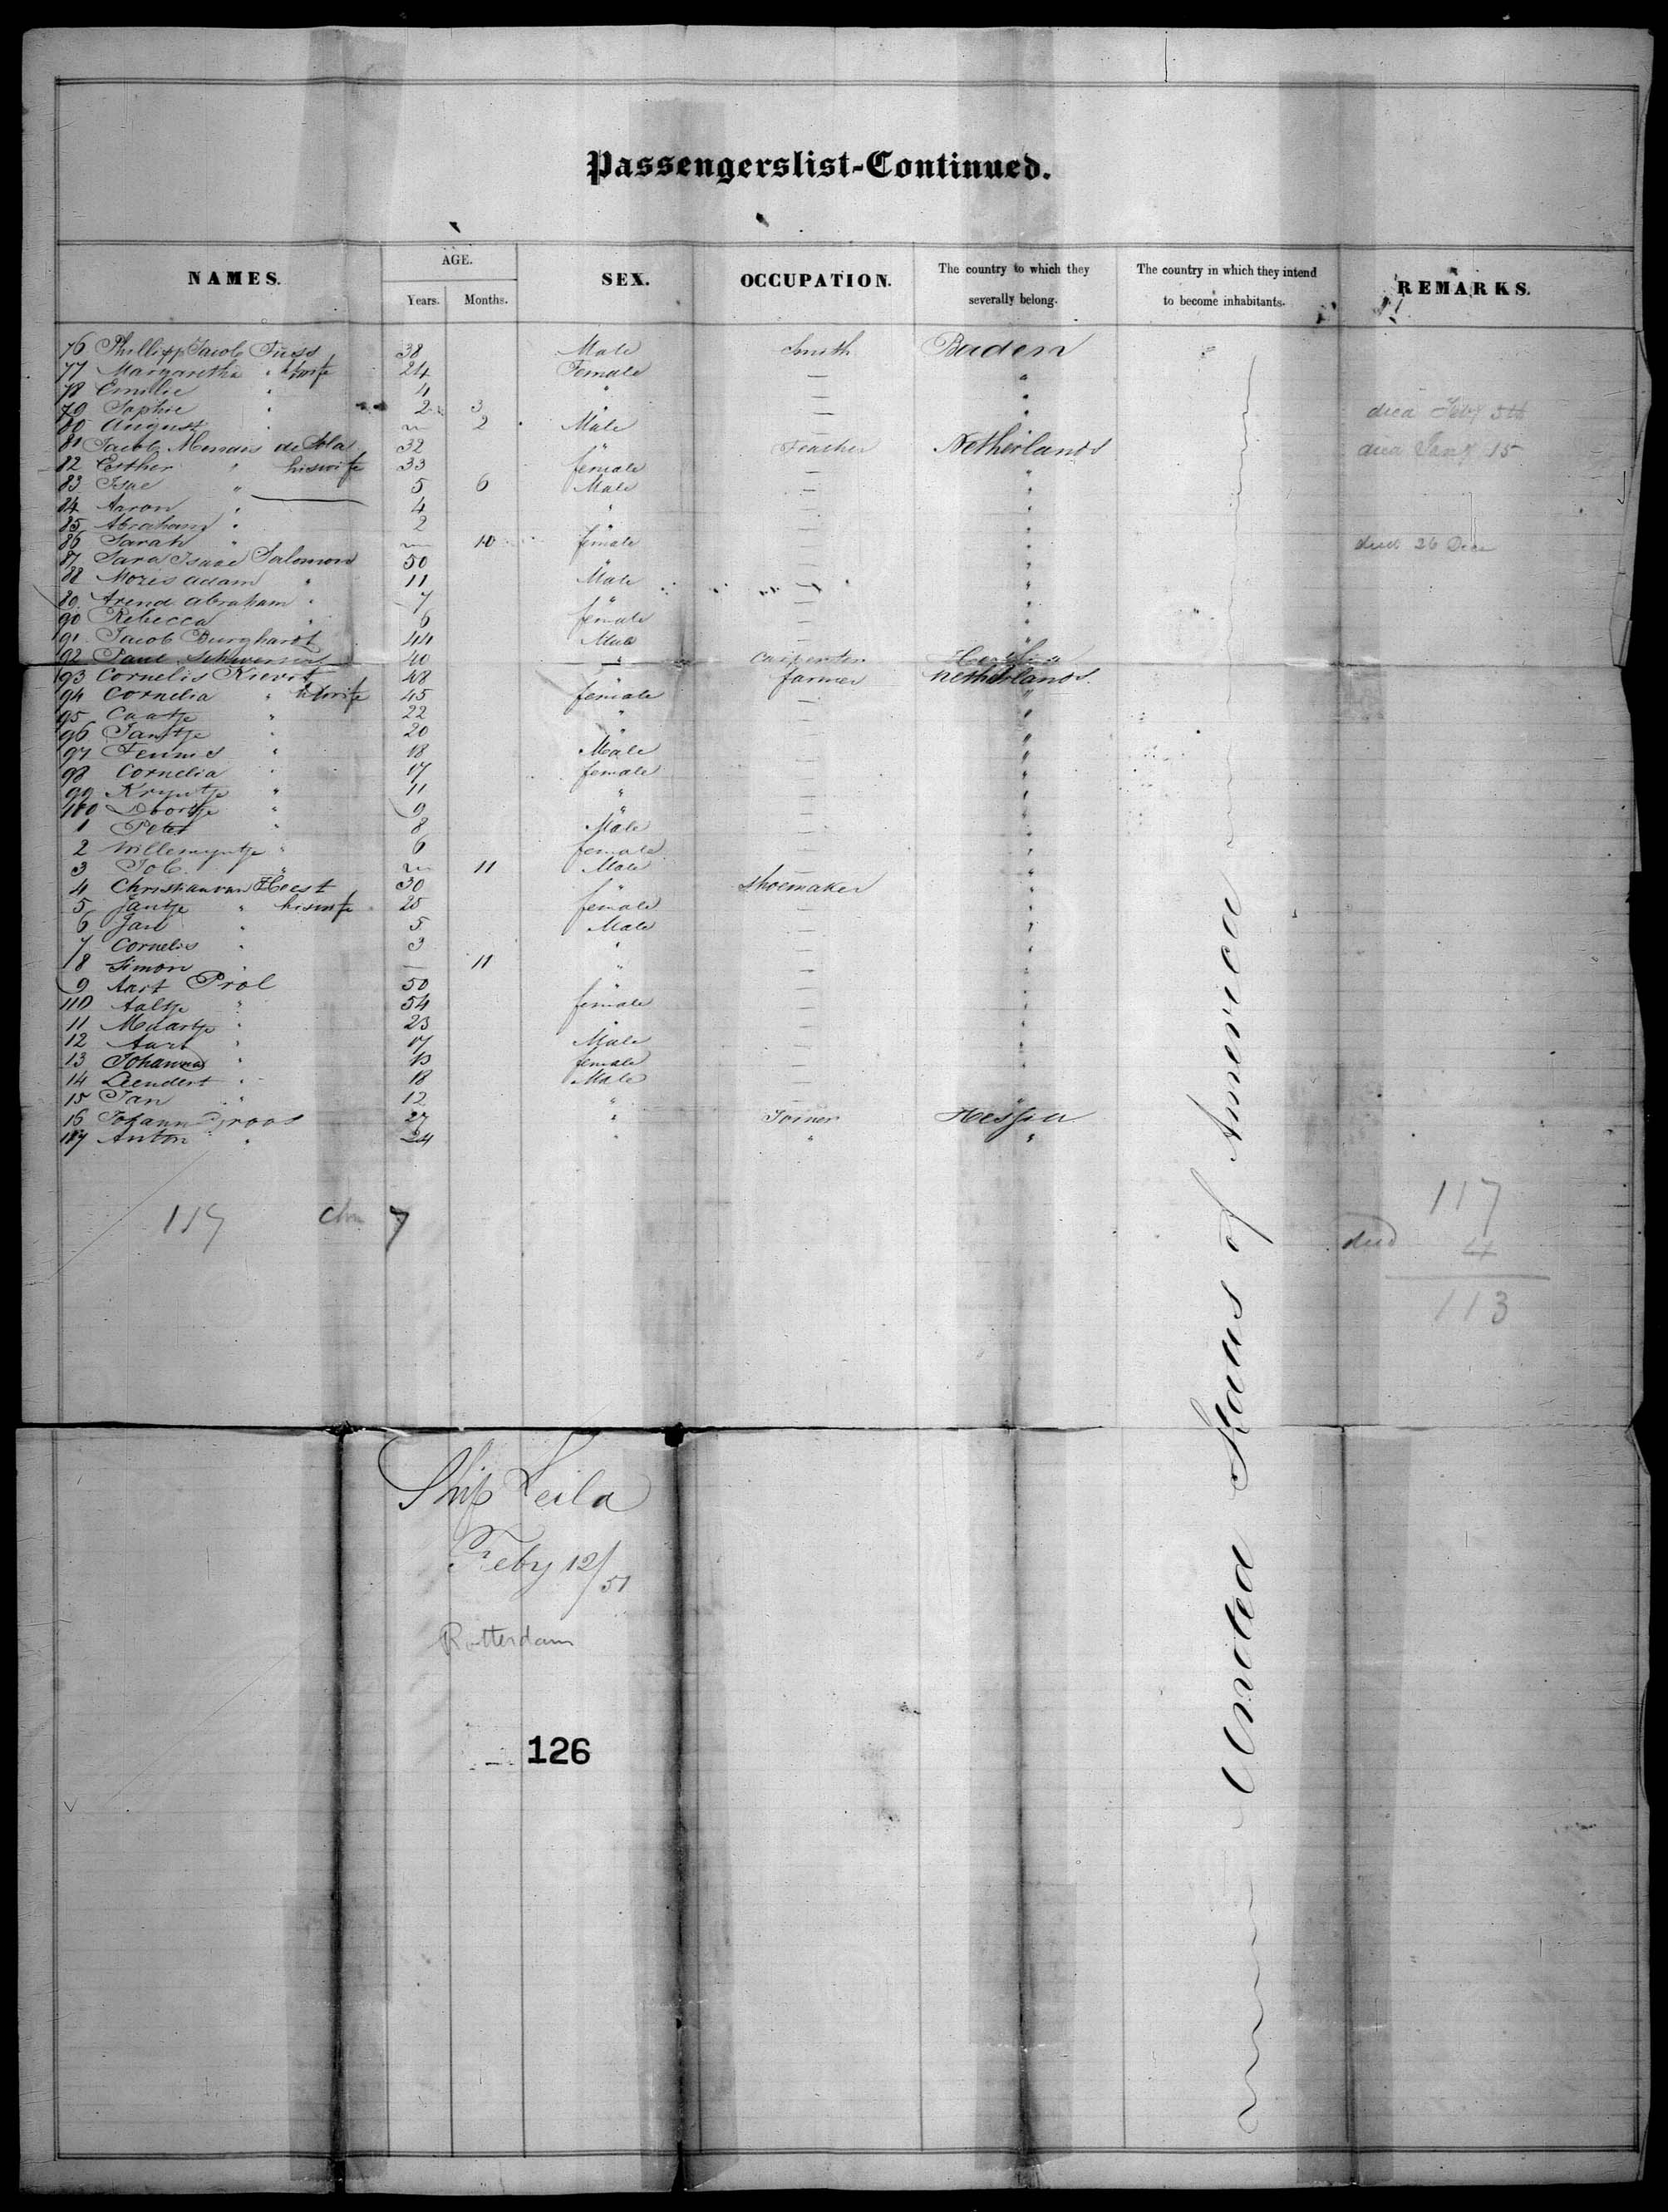 Passengerslist-Continued.
NAMES. AGE. SEX. OCCUPATION. The country to which they severally belong. The country in which they intend to become inhabitants. REMARKS.
Years. Months.
76 Phillipp Jacob Fuess 38 Male Smith Baden
77 Margaretha " wife 24 Female — "
78 Emilie " 4 " — "
79 Sophie " 2 3 " — " died Feby 5th
80 August " 2 Male — "
81 Jacob de Sola 32 " Teacher Netherlands died Jany 15
82 Esther " his wife 33 female — "
83 Isac " 5 6 Male — "
84 Aaron " 4 " — "
85 Abraham " 2 " — "
86 Sarah " 10 female — " died 26 Dec
87 Sara Isaac Salomon 50 " — "
88 Mozes Adam " 11 Male — "
89 Arend Abraham " 7 " — "
90 Rebecca " 6 female — "
91 Jacob Burghardt 44 Male — "
92 Paul 40 " Carpenter Hessia
93 Cornelis Kievit 48 " farmer Netherlands.
94 Cornelia " wife 45 female — "
95 Caatje " 22 " — "
96 Jantje " 20 " — "
97 Teunis " 18 Male — "
98 Cornelia " 17 female — "
99 Kryntje " 11 " — "
100 Doortje " 9 " — "
1 Peter " 8 Male — "
2 Willemyntje " 6 female — "
3 Job " 11 Male — "
4 Christiaan van Heest 30 " Shoemaker "
5 Jantje " his wife 25 female — "
6 Jan " 5 Male — "
7 Cornelis " 3 " — "
8 Simon " — 11 " — "
9 Aart Prol 50 " — "
110 Aaltje " 54 female — "
11 Maartje " 23 " — "
12 Aart " 17 Male — "
13 Johanna " female — "
14 Leendert " 18 Male — "
15 Jan " 12 " — "
16 Johann Groos 27 " Joiner Hessia
117 Anton " 24 " " "
United States of America
117 7
117
died 4
113
Ship Leila
Feby 12/51
Rotterdam
126